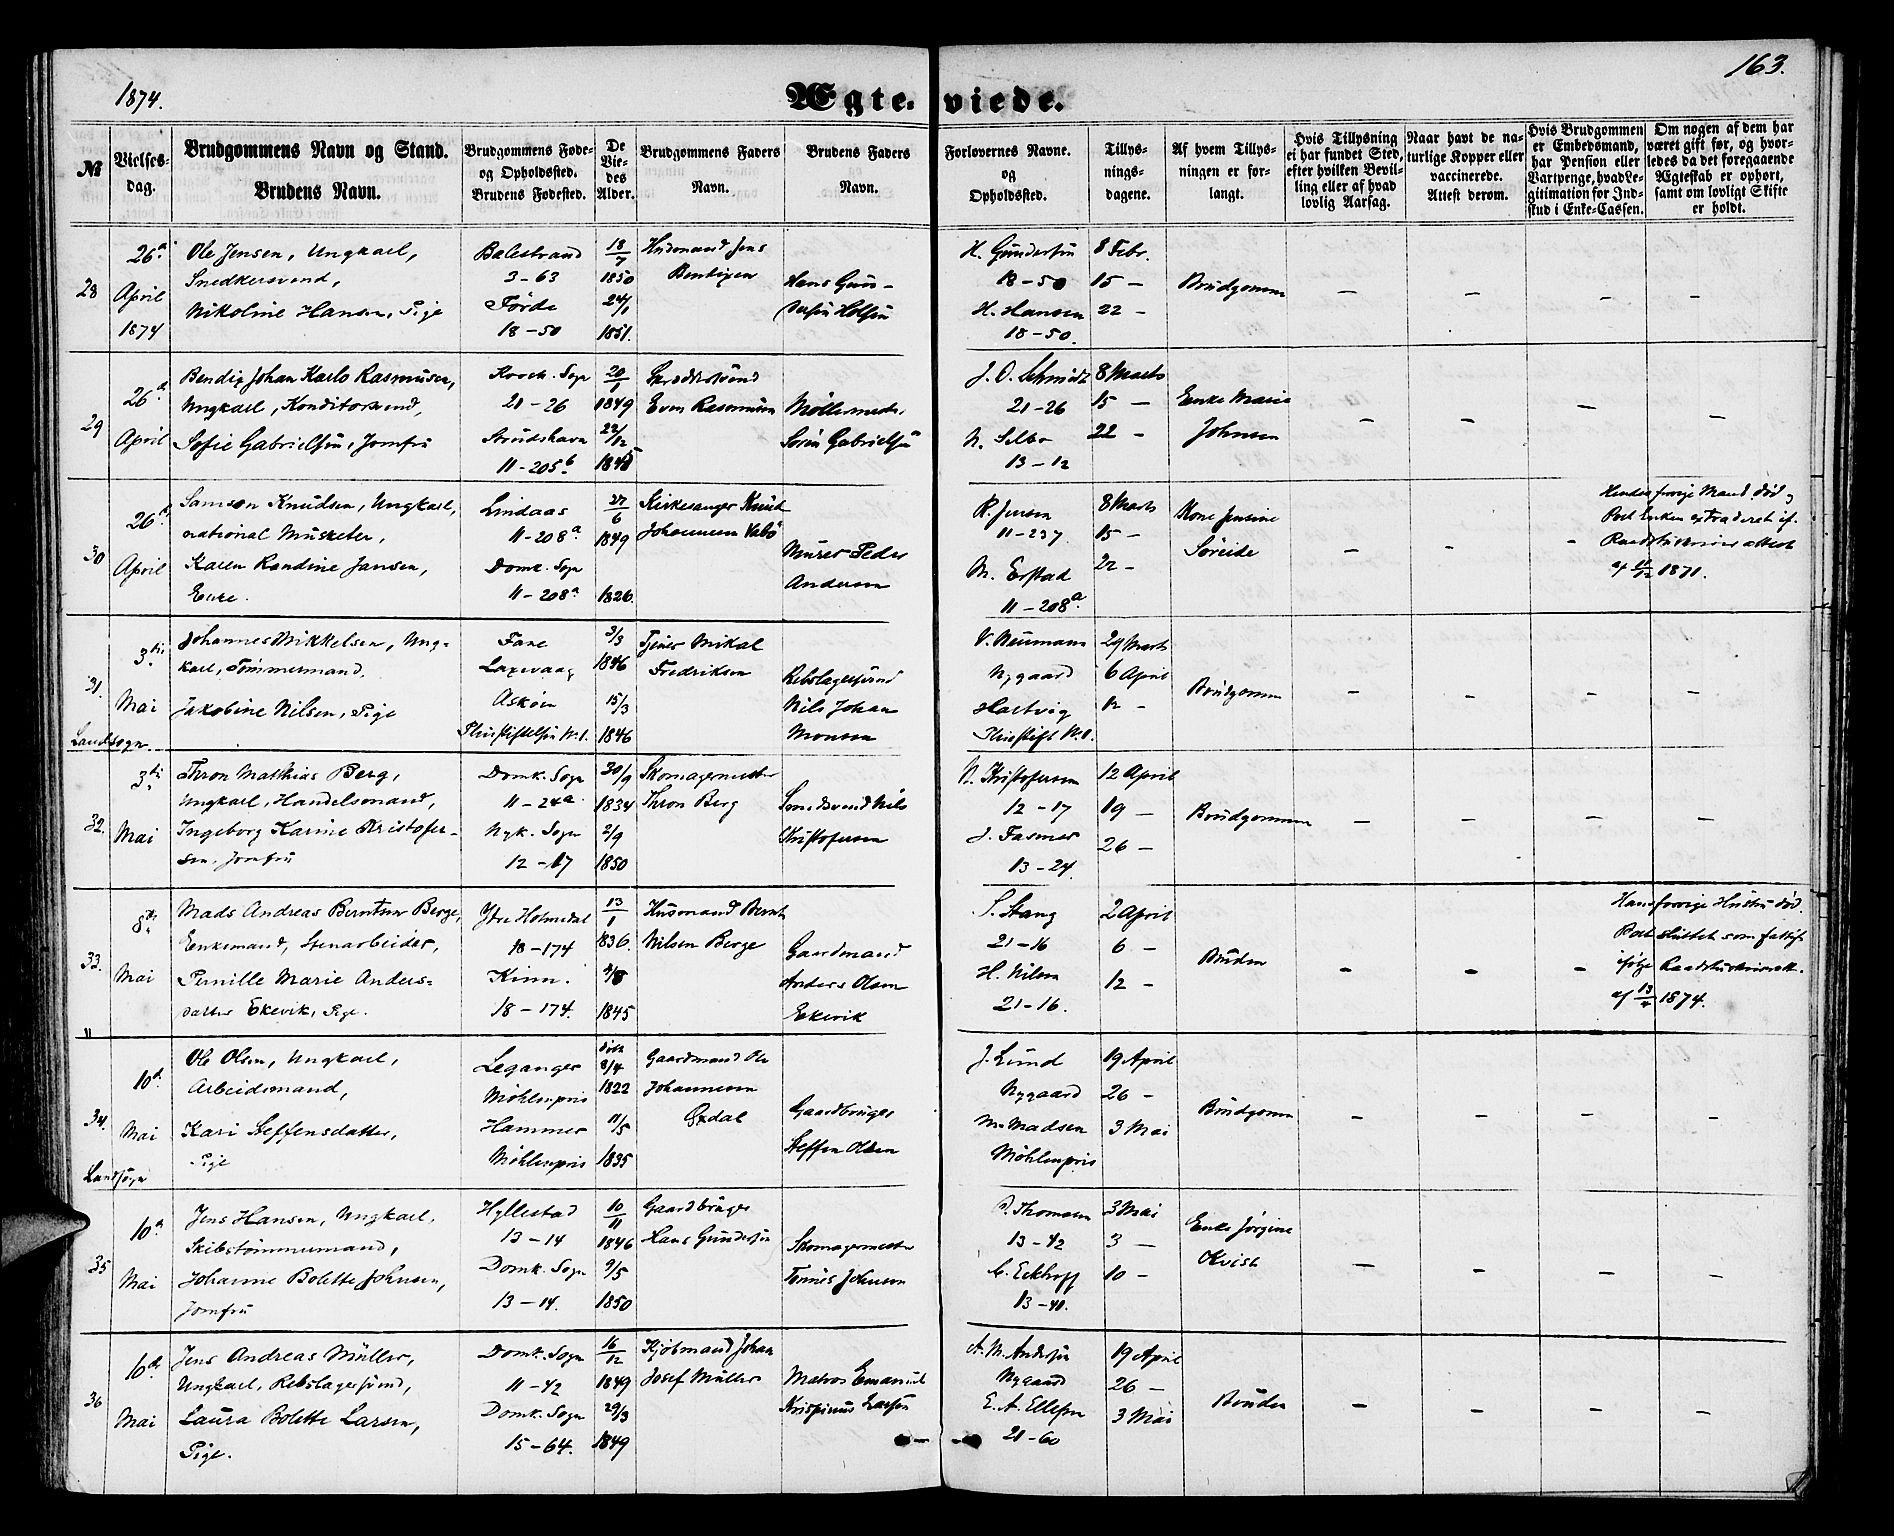 1874.
Ægteviede.
163.
№
Vielses-
dag.
Brudgommens Navn og Stand.
Brudens Navn.
Brudgommens Føde-
og Opholdssted.
Brudens Fødested.
De
Vie-
des
Alder.
Brudgommens Faders
Navn.
Brudens Faders
Navn.
Forlovernes Navne.
og
Opholdssted.
Tillys-
nings-
dagene.
Af hvem Tillys-
ningen er for-
langt.
Hvis Tillysning
ei har fundet Sted,
efter hvilken Bevil-
ling eller af hvad
lovlig Aarsag.
Naar havt de na-
turlige Kopper eller
vaccinerede.
Attest derom.
Hvis Brudgommen
er Embedsmand,
har Pension eller
Vartpenge, hvad Le-
gitimation for Ind-
skud i Enke-Cassen.
Om nogen af dem har
været gift før, og hvor-
ledes da det foregaaende
Ægteskab er ophørt,
samt om lovligt Skifte
er holdt.
28
26de
April
1874
Ole Jensen, Ungkarl,
Snedkersvend,
Nikoline Hansen, Pige
Balestrand
3-63
Førde
18-50
18/7
1850
24/1
1851.
Husmand Jens
Bentsen
Hans Gun-
H. Gundersen
18-50
H. Hansen
18-50.
8 Febr.
15 -
22 -
Brudgomm
-
-
-
-
29
26de
April
Bendix Johan Karlo Rasmusen,
Ungkarl, Konditorsvend,
Sofie Gabrielsen, Jomfru
Korsk. Sogn
21-26
11-205b
20/1
1849
22/12
Even Rasmusen
Møllermester
Søren Gabrielsen
J. O. Schmidt
21-26
N. Selbo
13-12
8 Marts
15 -
22 -
Enke Marie
Johnsen
-
-
-
-
30
26de
April
Samson Knudsen, Ungkarl,
national Musketer,
Karen Randine Jansen,
Enke.
Lindaas
11-208a
Domk. Sogn
11-208a
27/6
1849
1826.
Kirkesanger Knud
Johannesen
Murer Peder
Andersen
R. Jensen
11-237
M. Erstad
11-208a.
8 Marts
15 -
22 -
Kone Jensine
Søreide
-
-
-
Hendes forrige Mand død,
Boet Enken extraderet if.
Raadstuskriver attest
af 1871.
31.
Landsogn.
3die
Mai
Johannes Mikkelsen, Ung-
karl, Tømmermand.
Jakobine Nilsen, Pige
Fane
Laxevaag
Askøen
3/3
1846
15/3
1846
Tjener Mikal
Fredriksen
Rebslagersvend
Nils Johan
Monsen
V. Neumann
Nygaard
Hartvig
29 Marts
6 April
12 -
Brudgomm
-
-
-
-
32.
3die
Mai
Thron Matthias Berg,
Ungkarl, Handelsmand,
Ingeborg Karine Kristofer-
sen, Jomfru
Domk. Sogn
11-24a
Nyk. Sogn
12-17
30/9
1834
2/9
1850
Skomagermester
Thron Berg
Nils
Kristofersen
N. Kristofersen
12-17
J. Fasmer
13-24.
12 April
19 -
26 -
Brudgommen
-
-
-
-
33.
8de
Mai
Mads Andreas Berntsen Berge,
Enkemand, Stenarbeider,
Pernille Marie Anders-
datter Ekevik, Pige.
Ytre Holmedal
18-174
Kinn.
18-174.
13/1
1836.
1845
Husmand Bernt
Nilsen Berge
Gaardmand
Anders Olsen
Ekevik
S. Stang
21-16
H. Nilsen
21-16.
2 April
6 -
12 -
Bruden
-
-
-
Hans forrige Hustru død.
Boet sluttet som fattigt
ifølge Raadstuskriveratt.
af 1874.
34.
Landsogn
10de
Mai
Ole Olsen, Ungkarl,
Arbeidsmand,
Kari Steffensdatter,
Pige
Leganger
Møhlenpris
Hammer
Møhlenpris
døbt
8/4
1822
11/5
1835
Gaardmand Ole
Johannesen
Gaardbruger
Steffen Olsen
J. Lund
Nygaard
M. Madsen
Møhlenpris
19 April
26 -
3 Mai
Brudgomm
-
-
-
-
35
10de
Mai
Jens Hansen, Ungkarl,
Skibstømmermand,
Johanne Bolette Johnsen,
Jomfru
Hyllestad
13-14
Domk. Sogn
13-14.
10/11
1846
9/5
1850
Gaardbruger
Hans Gundersen
Skomagermester
Tønnes Johnson
D. Thomsen
13-42
C. Eckhoff
13-41.
3 Mai
3 -
10 -
Enke Jørgine
Kvist
-
-
-
-
36
10de
Mai
Jens Andreas Müller,
Ungkarl, Rebslagersvend,
Laura Bolette Larsen,
Pige.
Domk. Sogn
11-42
Domk. Sogn
15-64.
16/12
1849
29/3
1849
Kjøbmand Johan
Josef Müller
Matros Emanuel
Krispinus Larsen
A. M. Andersen
Nygaard
E. A. Ellefsen
21-60
19 April
26 -
3 Mai
Bruden
-
-
-
-